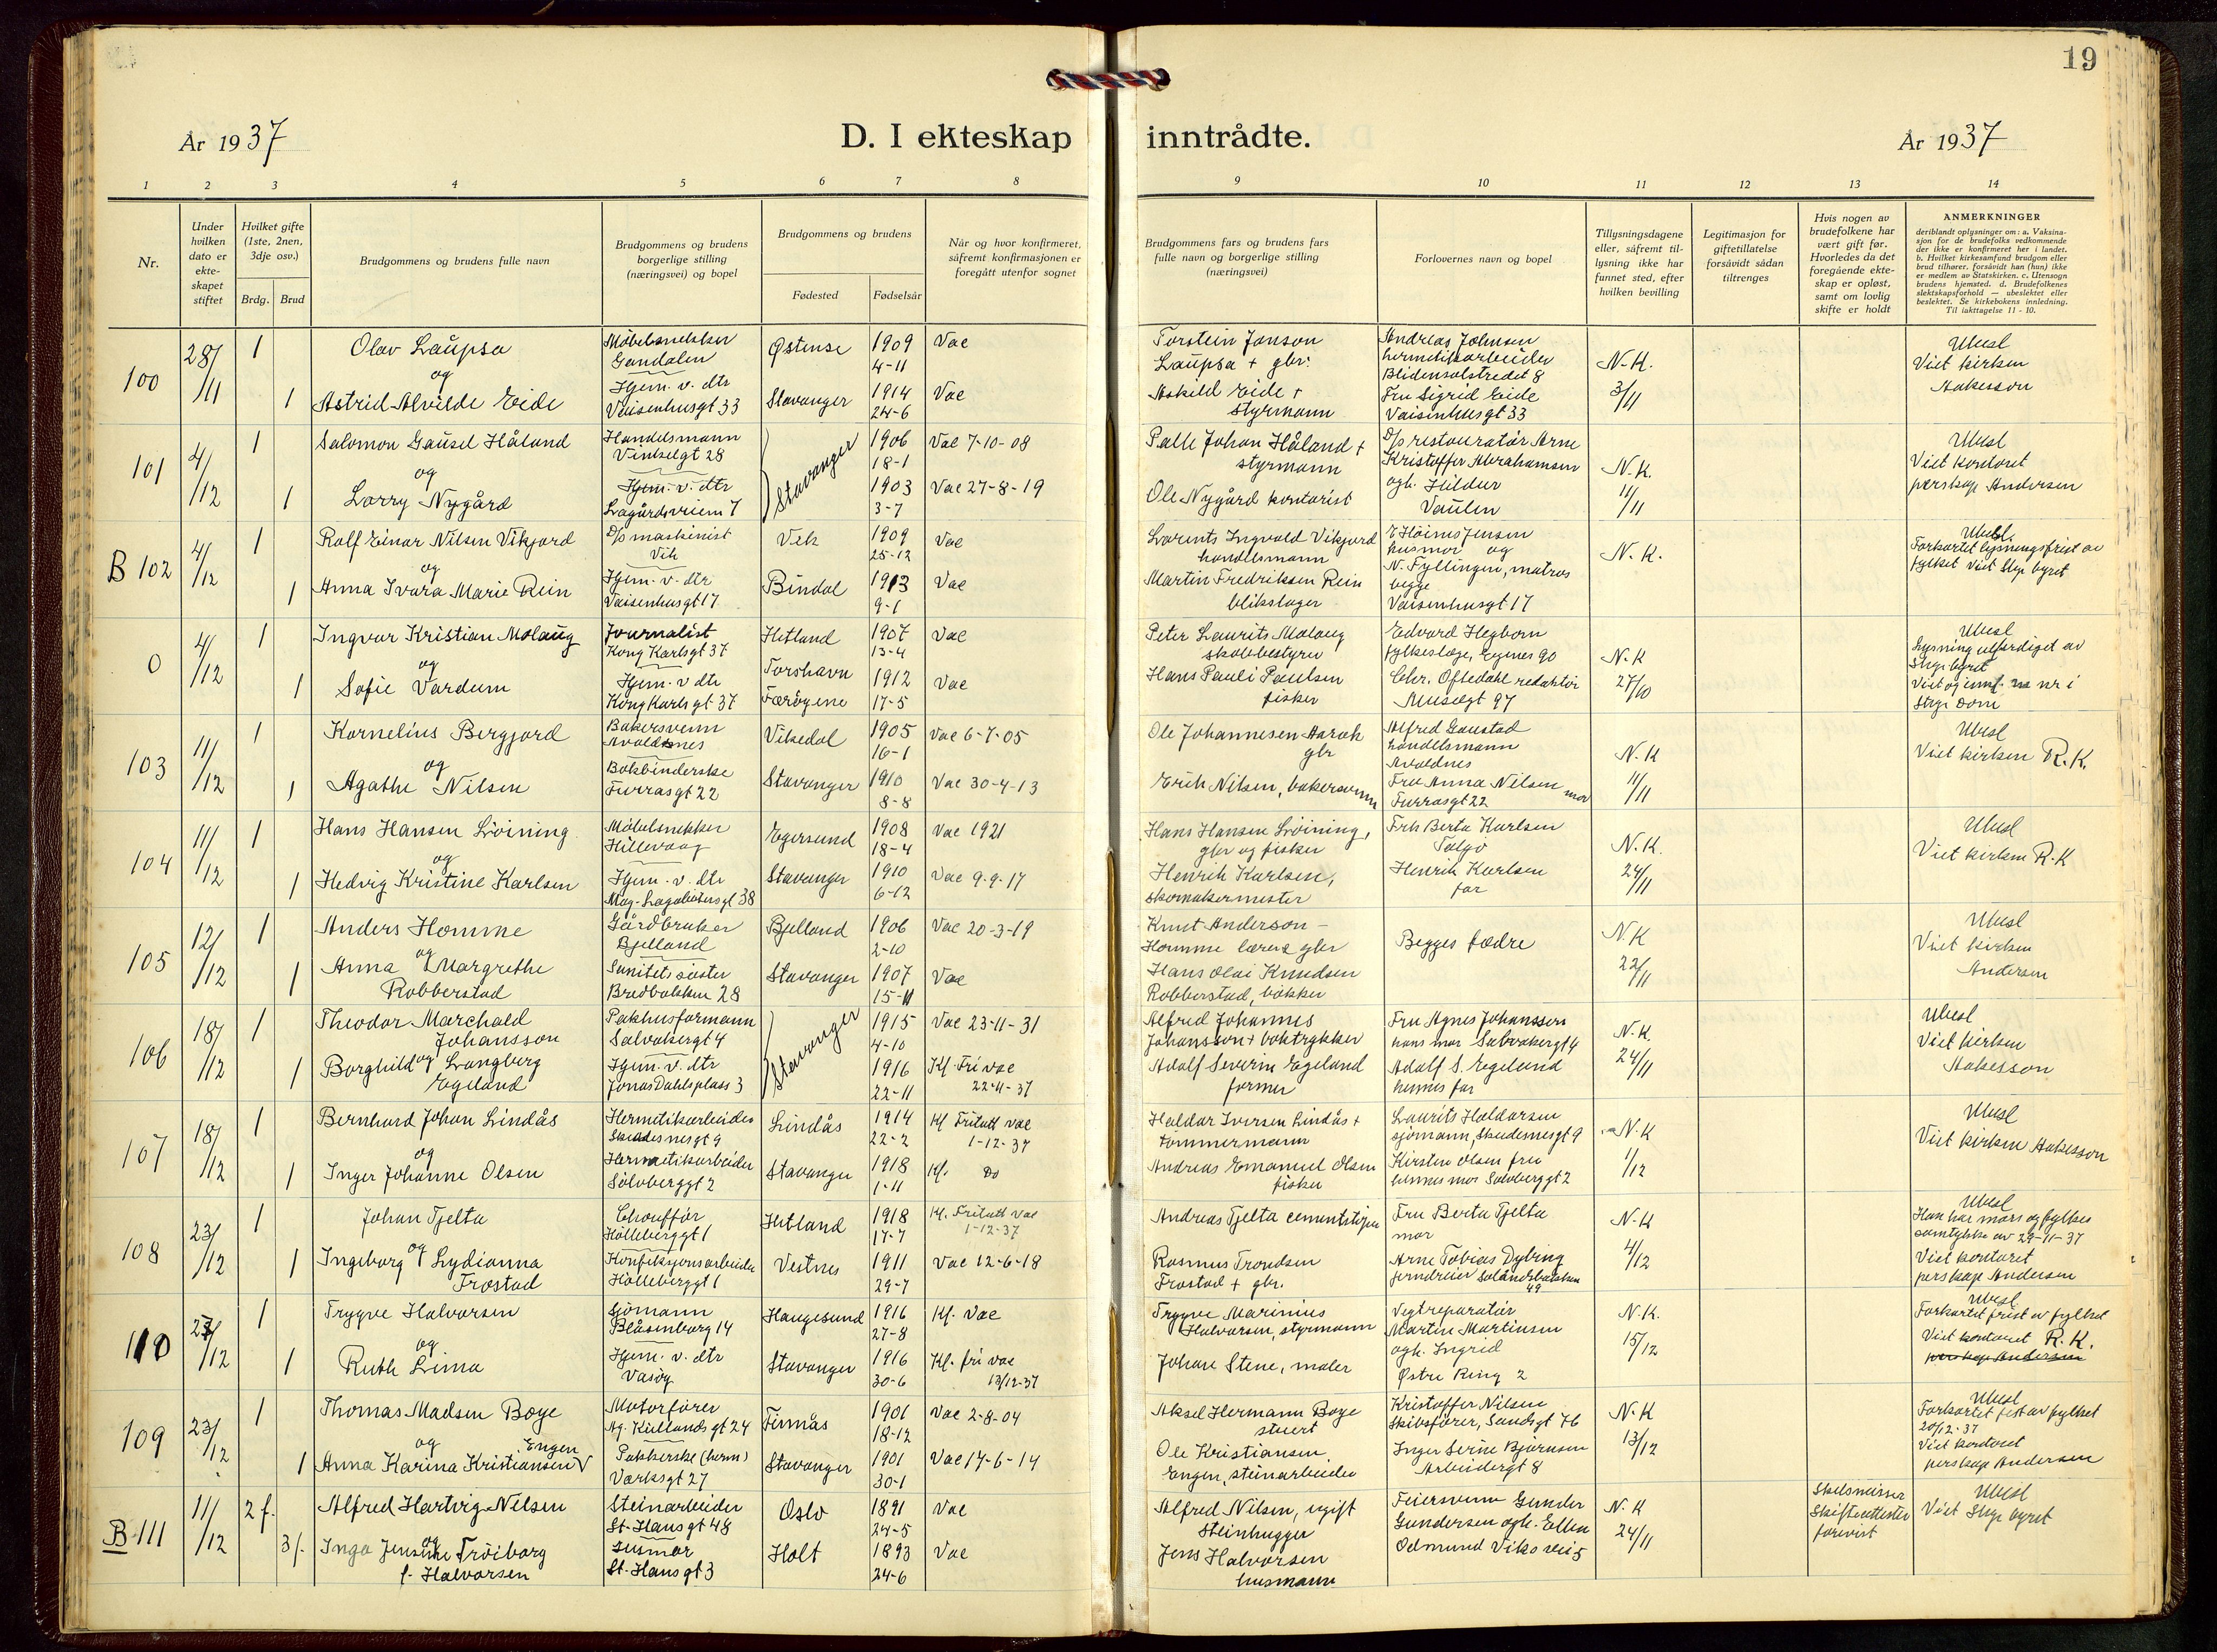 19
År 1937
D. I ekteskap inntrådte.
År 1937
1 2 3 4 5 6 7 8 9 10 11 12 13 14
Nr.
Under hvilken dato er ekte-skapet stiftet
Hvilket gifte (1ste, 2nen, 3dje osv.)
Brdg. Brud
Brudgommens og brudens fulle navn
Brudgommens og brudens borgerlige stilling (næringsvei) og bopel
Brudgommens og brudens
Fødested Fødselsår
Når og hvor konfirmeret, såfremt konfirmasjonen er foregått utenfor sognet
Brudgommens fars og brudens fars fulle navn og borgerlige stilling (næringsvei)
Forlovernes navn og bopel
Tillysningsdagene eller, såfremt til-lysning ikke har funnet sted, efter hvilken bevilling
Legitimasjon for giftetillatelse forsåvidt sådan tiltrenges
Hvis nogen av brudefolkene har vært gift før. Hvorledes da det foregående ekte-skap er opløst, samt om lovlig skifte er holdt
ANMERKNINGER
deriblandt oplysninger om: a. Vaksina-
sjon for de brudefolks vedkommende
der ikke er konfirmeret her i landet.
b. Hvilket kirkesamfund brudgom eller
brud tilhører, forsåvidt han (hun) ikke
er medlem av Statskirken. c. Utensogn
brudens hjemsted. d. Brudefolkenes
slektskapsforhold — ubeslektet eller
beslektet. Se kirkebokens innledning.
Til iakttagelse 11 - 10.
100 28/11 1 Olav Laupsa Møbelsnekker Gandalen Østense 1909 4-11 Vac Torstein Janson Laupsa + gbr. Andreas Johnsen hermetikkarbeider Blidensolstredet 8 N.K. 3/11 Ubesl Viet kirken Aakesson
og
1 Astrid Alvilde Eide Hjem. v. dtr Vaisenhusgt 33 Stavanger 1914 24-6 Vac Askild Eide + styrmann Fru Sigrid Eide Vaisenhusgt 33
101 4/12 1 Salomon Gausel Håland Handelsmann Vinkelgt 28 Stavanger 1906 18-1 Vac 7-10-08 Palle Johan Håland + styrmann D/s restauratør Arne Kristoffer Abrahamsen ogh. Hildur Vaulen N.K. 11/11 Ubesl Viet kontoret perskap Andersen
og
1 Larry Nygård Hjem. v. dtr Lagårdsveien 7 1903 3-7 Vac 27-8-19 Ole Nygård kontorist
B 102 4/12 1 Rolf Einar Nilsen Vikjord D/s maskinist Vik Vik 1909 25-12 Vac Larents Ingvald Vikjord handelsmann E Höines Jensen husmor og N. Fyllingen, matros begge Vaisenhusgt 17 N.K. Ubesl. Forkortet lysningsfrist av fylket Viet Stgr byret
og
1 Anna Ivara Marie Rein Hjem. v. dtr Vaisenhusgt 17 Bindal 1913 9-1 Vac Martin Fredriksen Rein blikslager
0 4/12 1 Ingvar Kristian Molaug Journalist Kong Karlsgt 37 Hetland 1907 13-4 Vac Peter Laurits Molaug skolebestyrer Edvard Hegborn fylkeslege, Egenes 90 N.K 27/10 Ubesl Lysning utferdiget av Stgr byret
og
1 Sofie Vardum Hjem. v dtr Kong Karlsgt 37 Torshavn Færöyene 1912 17-5 Vac Hans Pauli Paulsen fisker Chr. Oftedahl redaktör Museegt 97
103 11/12 1 Kornelius Bergjord Bakersvenn Avaldsnes Vikedal 1905 16-1 Vac 6-7-05 Ole Johannesen gbr Alfred Gaustad handelsmann Avaldsnes N.K 11/11 Ubesl Viet kirken R.K.
og
1 Agathe Nilsen Bokbinderske Furrasgt 22 Stavanger 1910 8-8 Vac 30-4-13 Erik Nilsen, bakersvenn Fru Anna Nilsen mor Furrasgt 22
104 11/12 1 Hans Hansen Lröining Møbelsnekker Hillevaag Egersund 1908 18-4 Vac 1921 Hans Hansen Lröining, gbr og fisker Frk Berta Karlsen Talgö N.K. 24/11 Ubesl Viet kirken R.K
og
1 Hedvig Kristine Karlsen Hjem. v. dtr 38 Stavanger 1910 6-12 Vac 9-9-17 Henrik Karlsen, skomakermester Henrik Karlsen far
105 12/12 1 Anders Homme Gårdbruker Bjelland Bjelland 1906 2-10 Vac 20-3-19 Knut Anderson Homme lærer gbr Begges fædre N.K 22/11 Ubesl Viet kirken Andersen
og
1 Anna Margrethe Robberstad Sanitetssöster Bredbakken 28 Stavanger 1907 15-11 Vac Hans Olai Knudsen Robberstad, bøkker
106 18/12 1 Theodor Marchald Johansson Pakhusformann Salvabergt 4 Stavanger 1915 4-10 Vac 23-11-31 Alfred Johannes Johansson + boktrykker Fru Agnes Johanssen hans mor Salvabergt 4 N.K. 24/11 Ubesl Viet kirken Aakesson
og
1 Borghild Langberg Egeland Hjem. v. dtr Jonas Dahls plass 3 1916 22-11 Kf. Fri vac 22-11-37 Adolf Severin Egeland former Adolf S. Egeland hennes far
107 18/12 1 Bernhard Johan Lindås Hermetikarbeider Skudesnesgt 9 Lindås 1914 22-2 Kf Fritatt vac 1-12-37 Haldor Iversen Lindås + tömmermann Laurits Haldorsen sjömann, Skudesnesgt 9 N.K 1/12 Ubesl Viet kirken Aakesson
og
1 Inger Johanne Olsen Hermetikarbeider Sölvberggt 2 Stavanger 1918 1-11 Kf. Do Andreas Emanuel Olsen fisker Kirsten Olsen fru hennes mor Sölvberggt 2
108 23/12 1 Johan Tjelta Chouffør Holleberggt 1 Hetland 1918 17-7 Kf. Fritatt vac 1-12-37 Andreas Tjelta Fru Berta Tjelta mor N.K 4/12 Ubesl Han har mors og fylkes samtykke av 29-11-37 Viet kontoret perskap Andersen
og
1 Ingeborg Lydianna Frostad Konfeksjonsarbeider Holleberggt 1 Vestnes 1911 29-7 Vac 12-6-18 Rasmus Trondsen Frostad + gbr. Arne Tobias Dybing jerndreier 49
110 23/12 1 Trygve Halvorsen Sjömann Blåsenborg 14 Haugesund 1916 27-8 Kf. Vac Trygve Marinius Halvorsen, styrmann Vegtreparatör Martin Martinsen ogh. Ingrid Østre Ring 2 N.K. 15/12 Ubesl Forkortet frist av fylket Viet kontoret R.K. perskap Andersen
og
1 Ruth Lima Hjem. v. dtr Vasöy Stavanger 1916 30-6 Kf. fri vac 13/12-37 Johan Stene, maler
109 23/12 1 Thomas Madsen Boye Motorförer Ag. Kiellands gt 24 Finnås 1901 18-12 Vac 2-8-04 Aksel Hermann Boye stuert Kristoffer Nilsen Skibsförer, Sandsgt 76 N.K 13/12 Ubesl Forkortet frist av fylket 20/12-37 Viet kontoret perskap Andersen
og
1 Anna Karina Kristiansen Engen Pakkerske (herm) Værksgt 27 Stavanger 1901 30-1 Vac 17-6-14 Ole Kristiansen Engen, steinarbeider Inger Serine Bjørnsen Arbeidergt 8
B 111 11/12 2 f. Alfred Hartvig Nilsen Steinarbeider St. Hansgt 48 Oslo 1891 24-5 Vac Alfred Nilsen, ugift Steinhugger Feiersvenn Gunder Gundersen ogh. Ellen Odmund Viks vei 5 N.K 24/11 Skilsmisse Skifteattester forevist Ubesl Viet Stgr byret
og
3 f. Inga Jensine Tröiborg f. Halvorsen Husmor St. Hansgt 3 Holt 1893 24-6 Vac Jens Halvorsen husmann